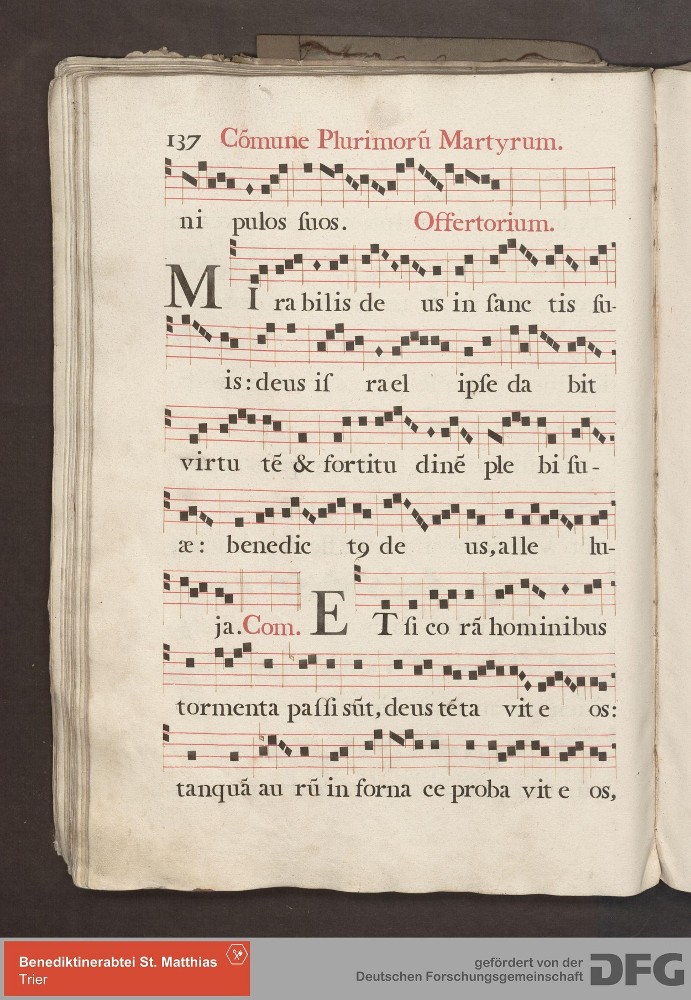 137 Cõmune Plurimorũ Martyrum.
ni pulos ſuos. Offertorium.
MI rabilis de us in ſanc tis ſu-
is: deus iſ rael ipſe da bit
virtu tẽ & fortitu dinẽ ple bi ſu-
æ: benedic tꝯ de us, alle lu-
ja. Com. ET ſi co rã hominibus
tormenta paſſi sũt, deus tẽta vit e os:
tanquã au rũ in forna ce proba vit e os,
Benediktinerabtei St. Matthias
Trier
gefördert von der
Deutschen Forschungsgemeinschaft
DFG